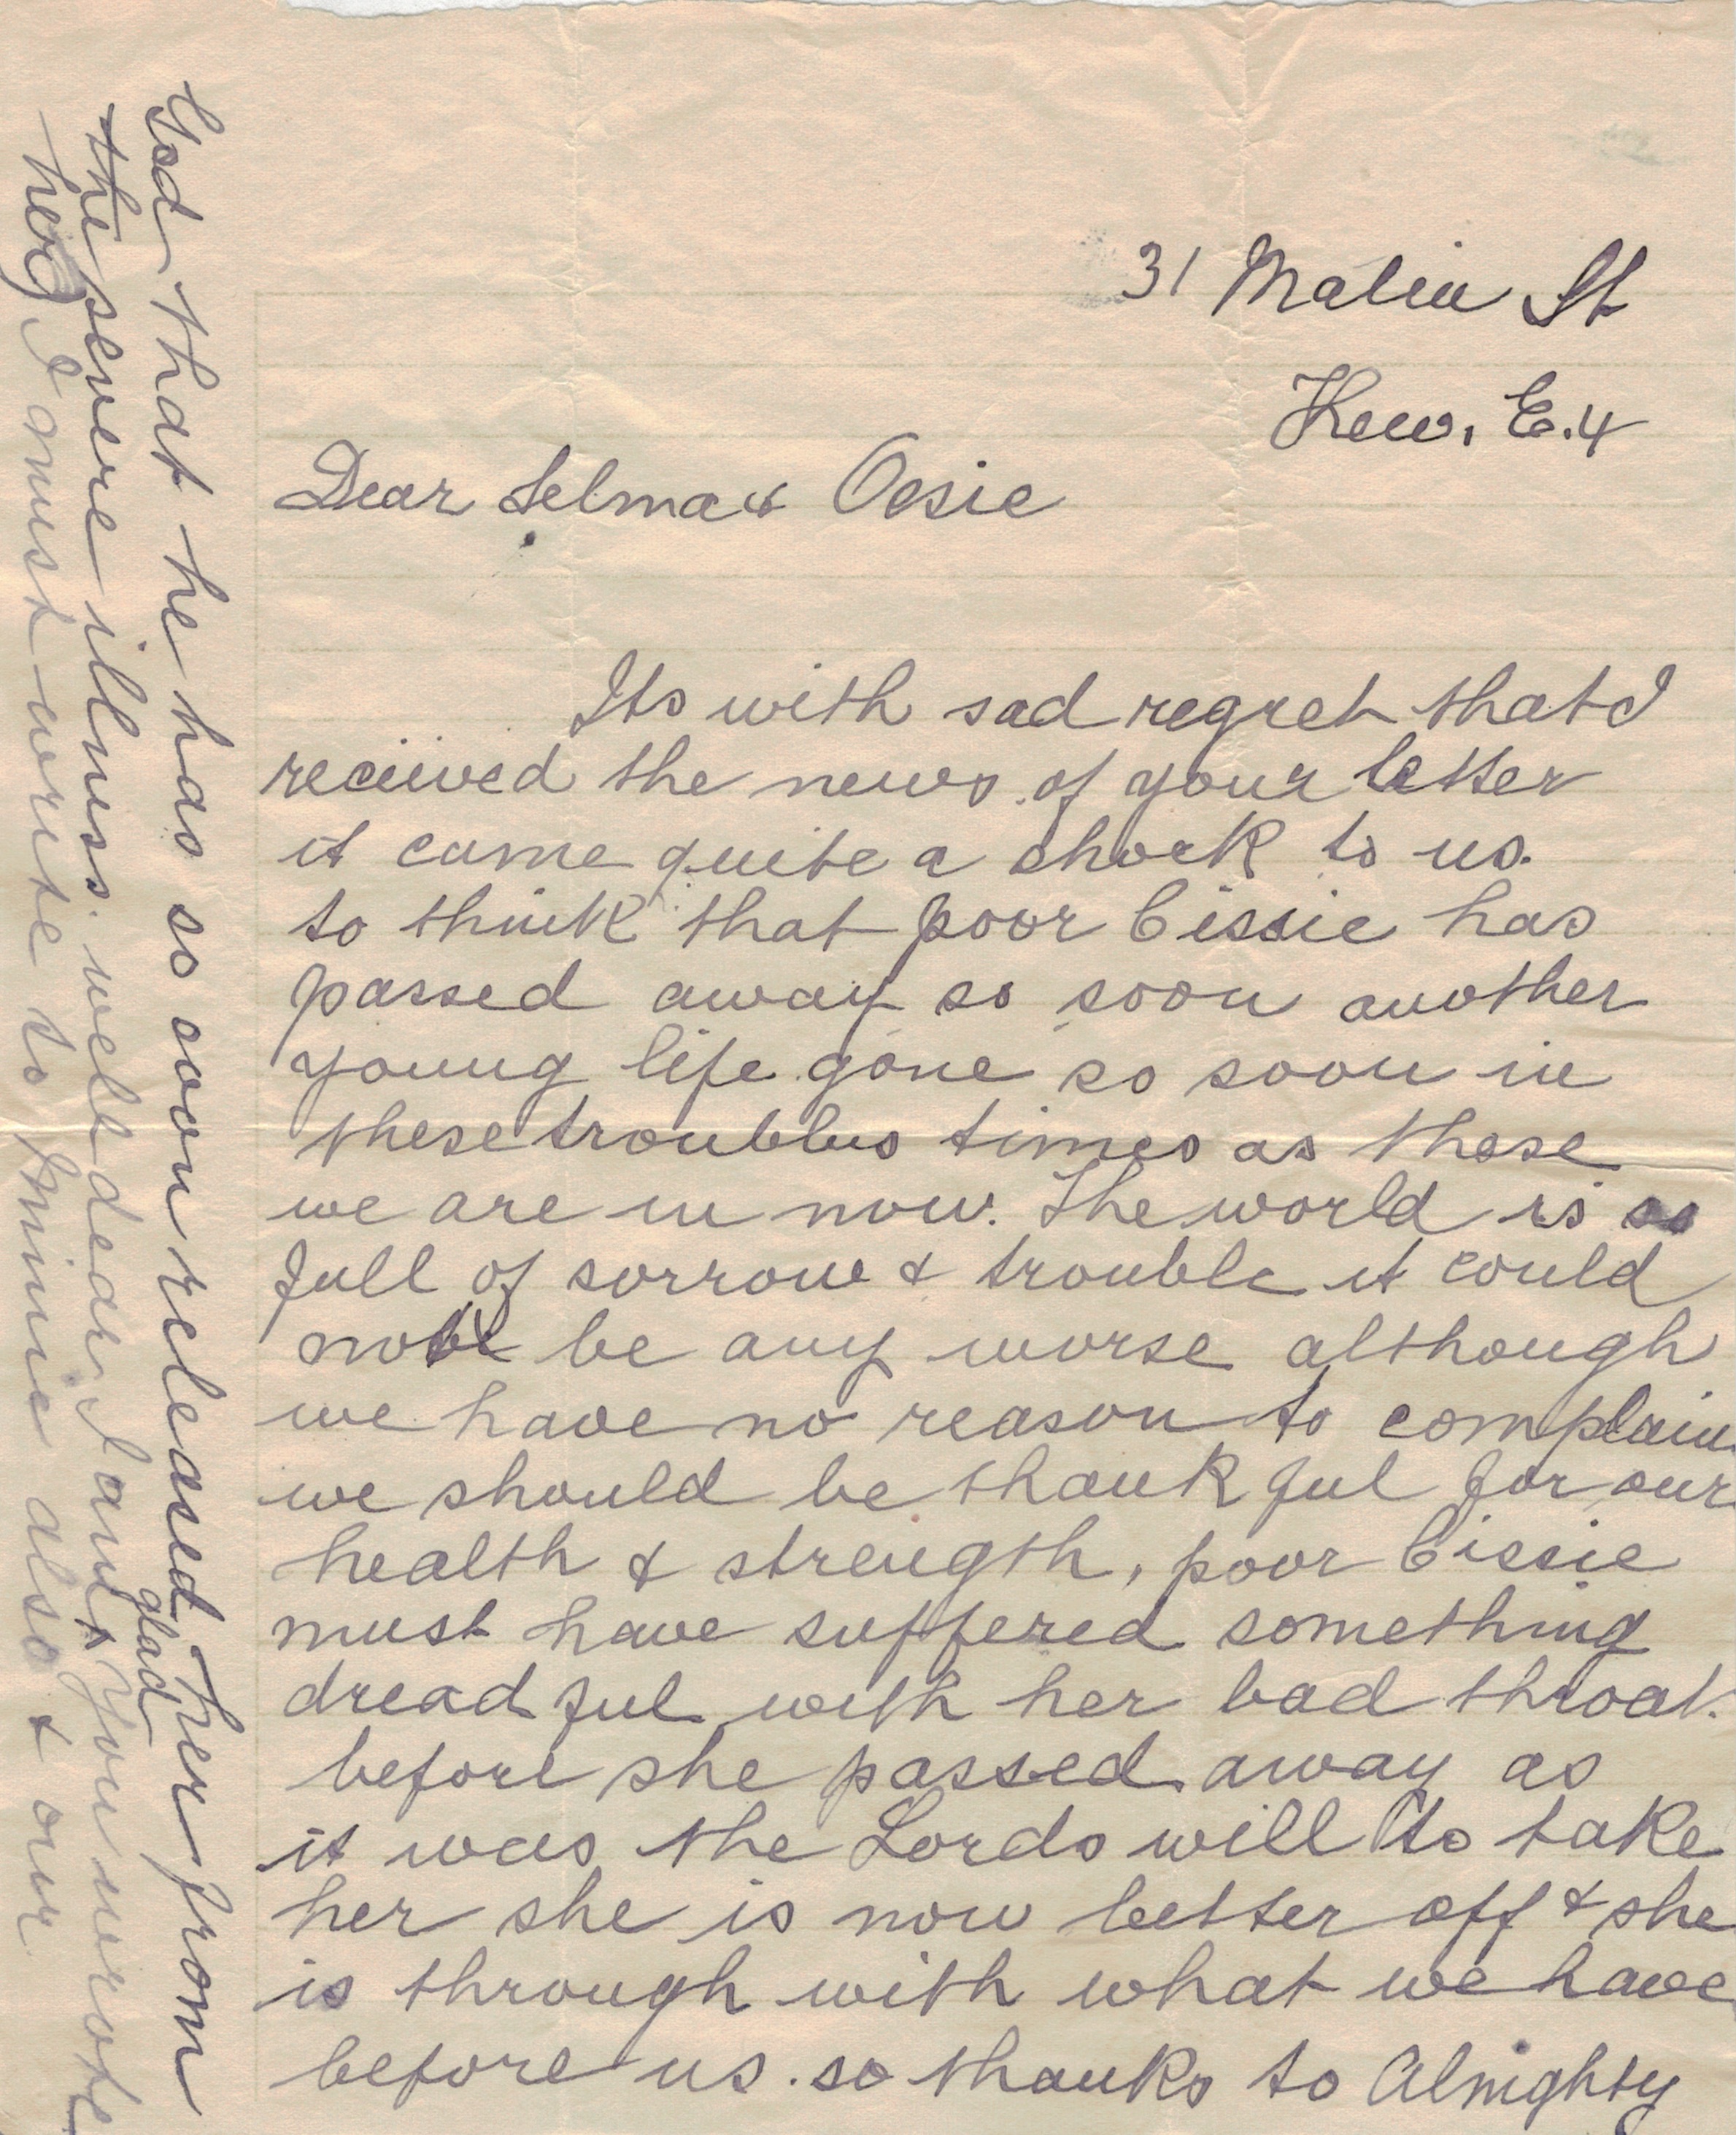 31 Malin St
Kew. E.4
Dear Selma & Ossie
Its with sad regret that I
recieived the news of your letter
it came quite a shock to us.
to think that poor Cissie has
passed away so soon another
young life gone so soon in
these troubles times as these
we are in now. The world is so
full of sorrow & trouble it could
not be any worse although
we have no reason to complain
we should be thankful for our
health & strength, poor Cissie
must have suffered something
dreadful with her bad throat.
before she passed away as
it was the Lords will to take
her she is now better off & she
is through with what we have
before us. so thanks to Almighty
God that he has so soon released her from
the severe illness. well dear I am glad you wrote
I must write to Minnie also & our